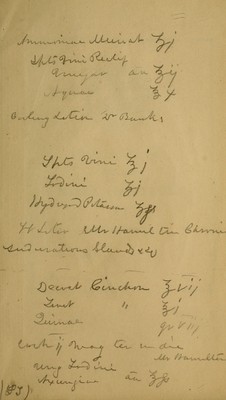 Ammoniae Muriat ʒj
Spts Vini Rectif
aa ʒij
Aquae ℥x
Cooling Lotion Dr Banks
Spts Vini ℥j
Iodini ʒj
Hydriod Potassm ʒſs
Mr Hamilton Chronic
Indurations Glands &c
Decoct Cinchon ℥vij
Tinct " ℥j
Quinae gr viij
Coch ij mag ter in die
Mr Hamilton
Ung Iodini
Axungiae aa ℥ſs